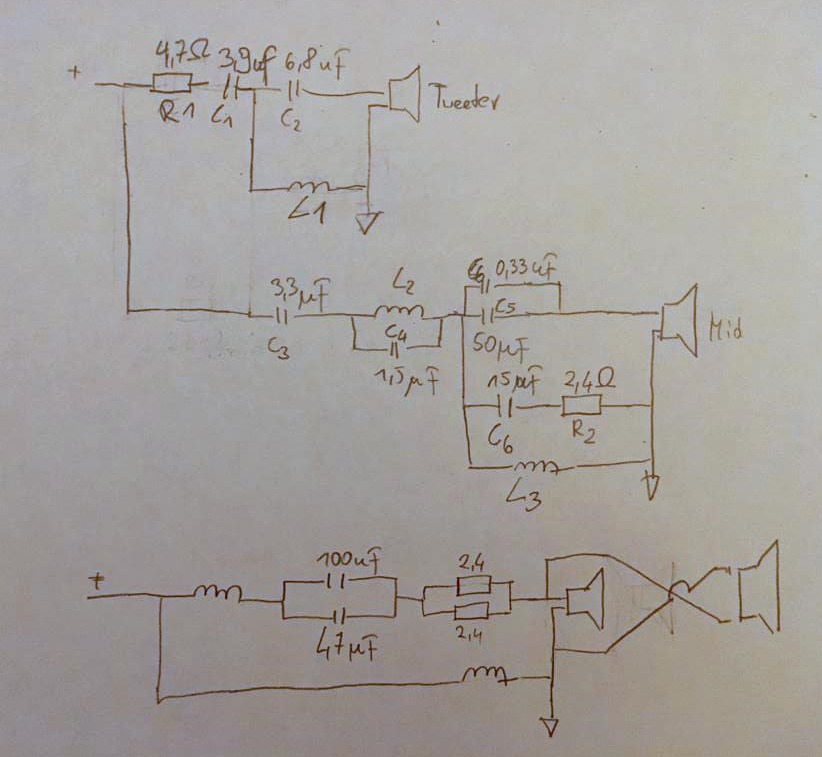 4,7Ω 3,9uf 6,8uF
+
R1 C1 C2 Tweeter
L1
3,3μF L2 0,33uF
C5
C3 C4 50μF Mid
1,5μF 15μF 2,4Ω
C6 R2
L3
100uF 2,4
+
47μF 2,4